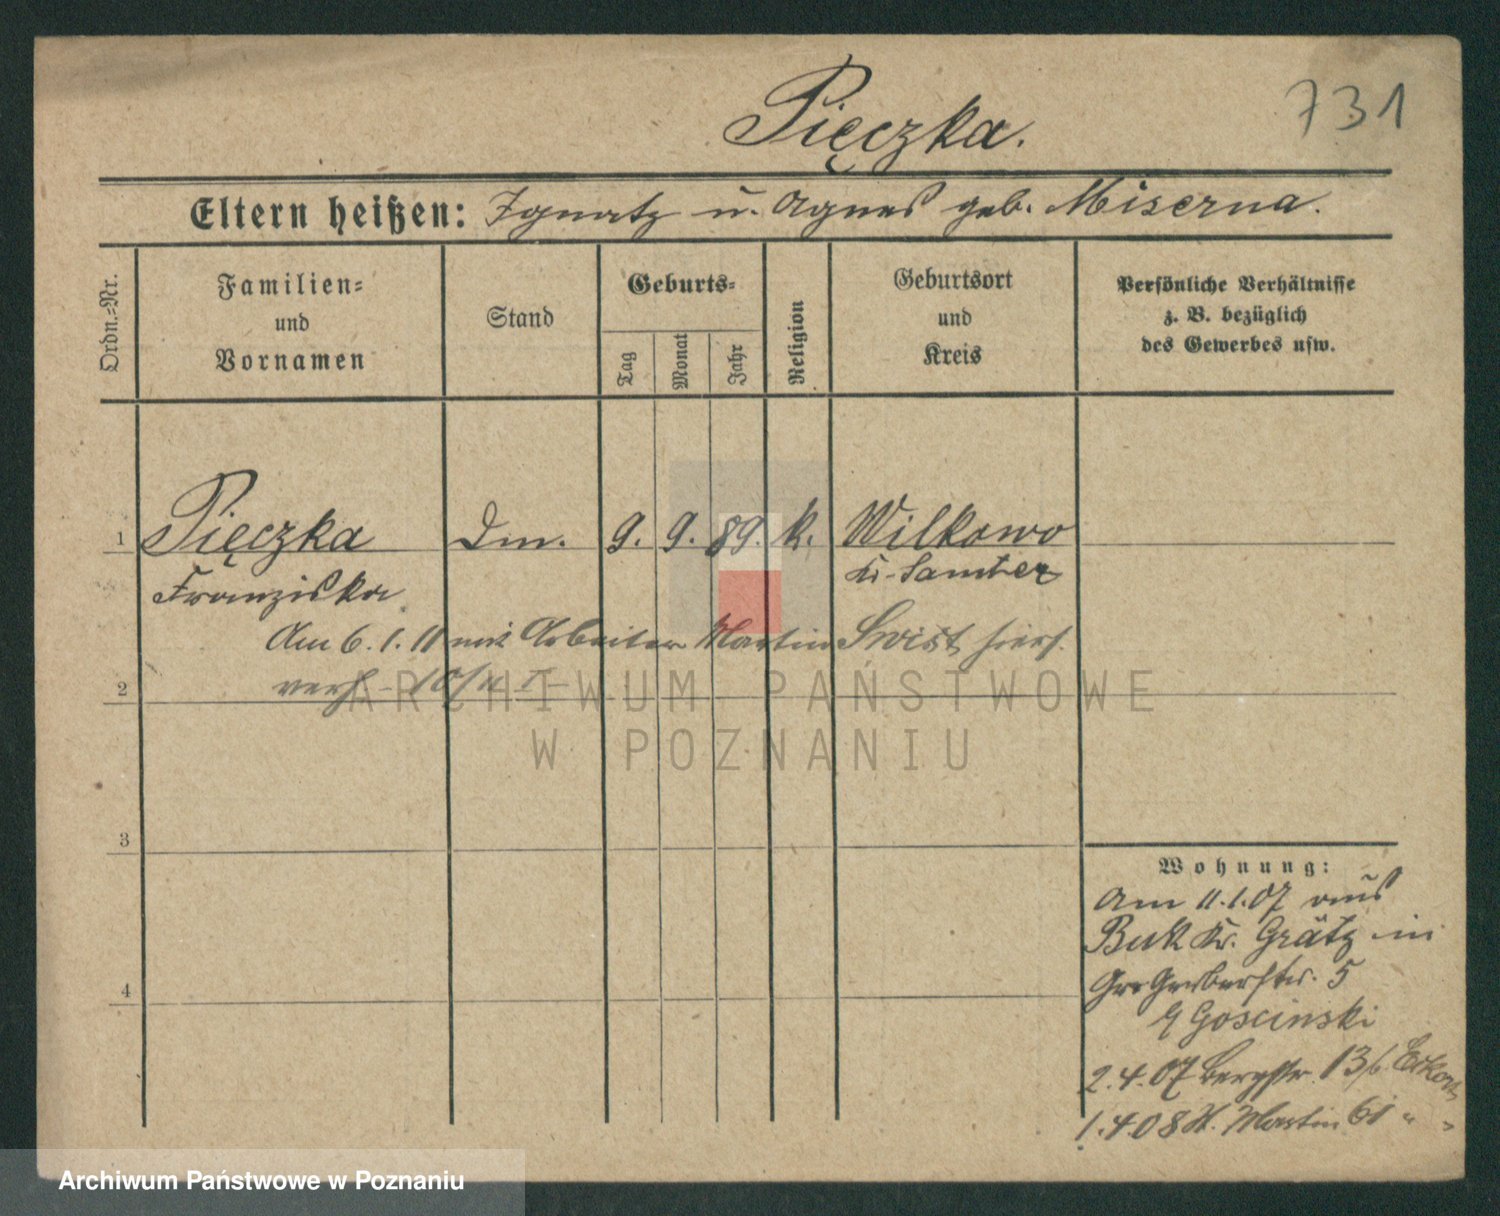 731
Pięczka.
Eltern heißen: Ignatz u. Agnes geb. Miserna.
Ordn.=Nr.
Familien=
und
Vornamen
Stand
Geburts=
Tag
Monat
Jahr
Religion
Geburtsort
und
Kreis
Persönliche Verhältnisse
z. B. bezüglich
des Gewerbes usw.
1 Pięczka Dm. 9. 9. 89. k. Wilkowo
Franziska Kr. Samter
Am 6.1.11 mit Arbeiter Martin Swist hiers.
2 verh.
3
4
Wohnung:
Am 11.1.07 aus
Buk Kr. Grätz in
Gr Gerberstr. 5
Goscinski
2.4.07 Bergstr. 13
1.4.08 St. Martin 61 " "
ARCHIWUM PAŃSTWOWE
W POZNANIU
Archiwum Państwowe w Poznaniu